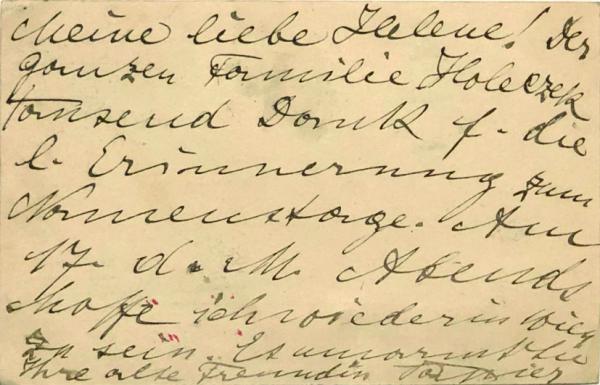 Meine liebe Helene! Der
ganzen Familie Holeczek
tausend Dank f. die
l. Erinnerung zum
Namenstage. Am
17. d. M. Abends
hoffe ich wieder in Wien
zu sein. Es umarmt Sie
Ihre alte Freundin